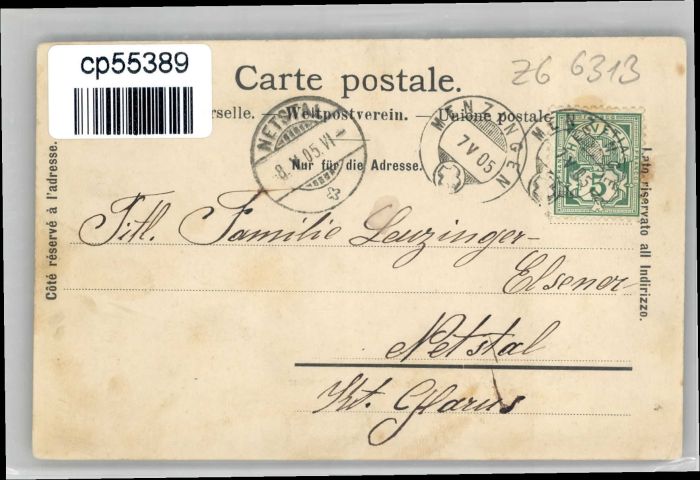 cp55389
Z6 6313
Carte postale.
erselle. — Weltpostverein. — Unione postale
Nur für die Adresse.
NETSTAL
8. V. 05. VI
MENZINGEN
7 V 05
MENZ
HELVETIA
5
Côté réservé à l'adresse.
Lato riservato all Indirizzo.
Titl. Familie Leuzinger-
Elsener
Netstal
Kt. Glarus